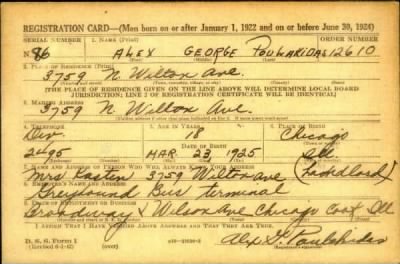 REGISTRATION CARD—(Men born on or after January 1, 1922 and on or before June 30, 1924)
SERIAL NUMBER 1. NAME (Print) ORDER NUMBER
N 86 ALEX GEORGE 12610
(First) (Middle) (Last)
2. PLACE OF RESIDENCE (Print)
3759 N. Wilton Ave.
(Number and street) (Town, township, village, or city) (County) (State)
[THE PLACE OF RESIDENCE GIVEN ON THE LINE ABOVE WILL DETERMINE LOCAL BOARD
JURISDICTION; LINE 2 OF REGISTRATION CERTIFICATE WILL BE IDENTICAL]
3. MAILING ADDRESS
3759 N. Wilton Ave.
4. TELEPHONE 5. AGE IN YEARS 6. PLACE OF BIRTH
18 Chicago
DATE OF BIRTH
2495 MAR. 23 1925 Ill
7. NAME AND ADDRESS OF PERSON WHO WILL ALWAYS KNOW YOUR ADDRESS
Mrs 3759 Wilton Ave (Landlord)
8. EMPLOYER'S NAME AND ADDRESS
Greyhound Bus terminal
9. PLACE OF EMPLOYMENT OR BUSINESS
Broadway & Wilson Ave Chicago Cook Ill
I AFFIRM THAT I HAVE VERIFIED ABOVE ANSWERS AND THAT THEY ARE TRUE.
D. S. S. Form 1
(Revised 6-9-42) (over) Alex G.